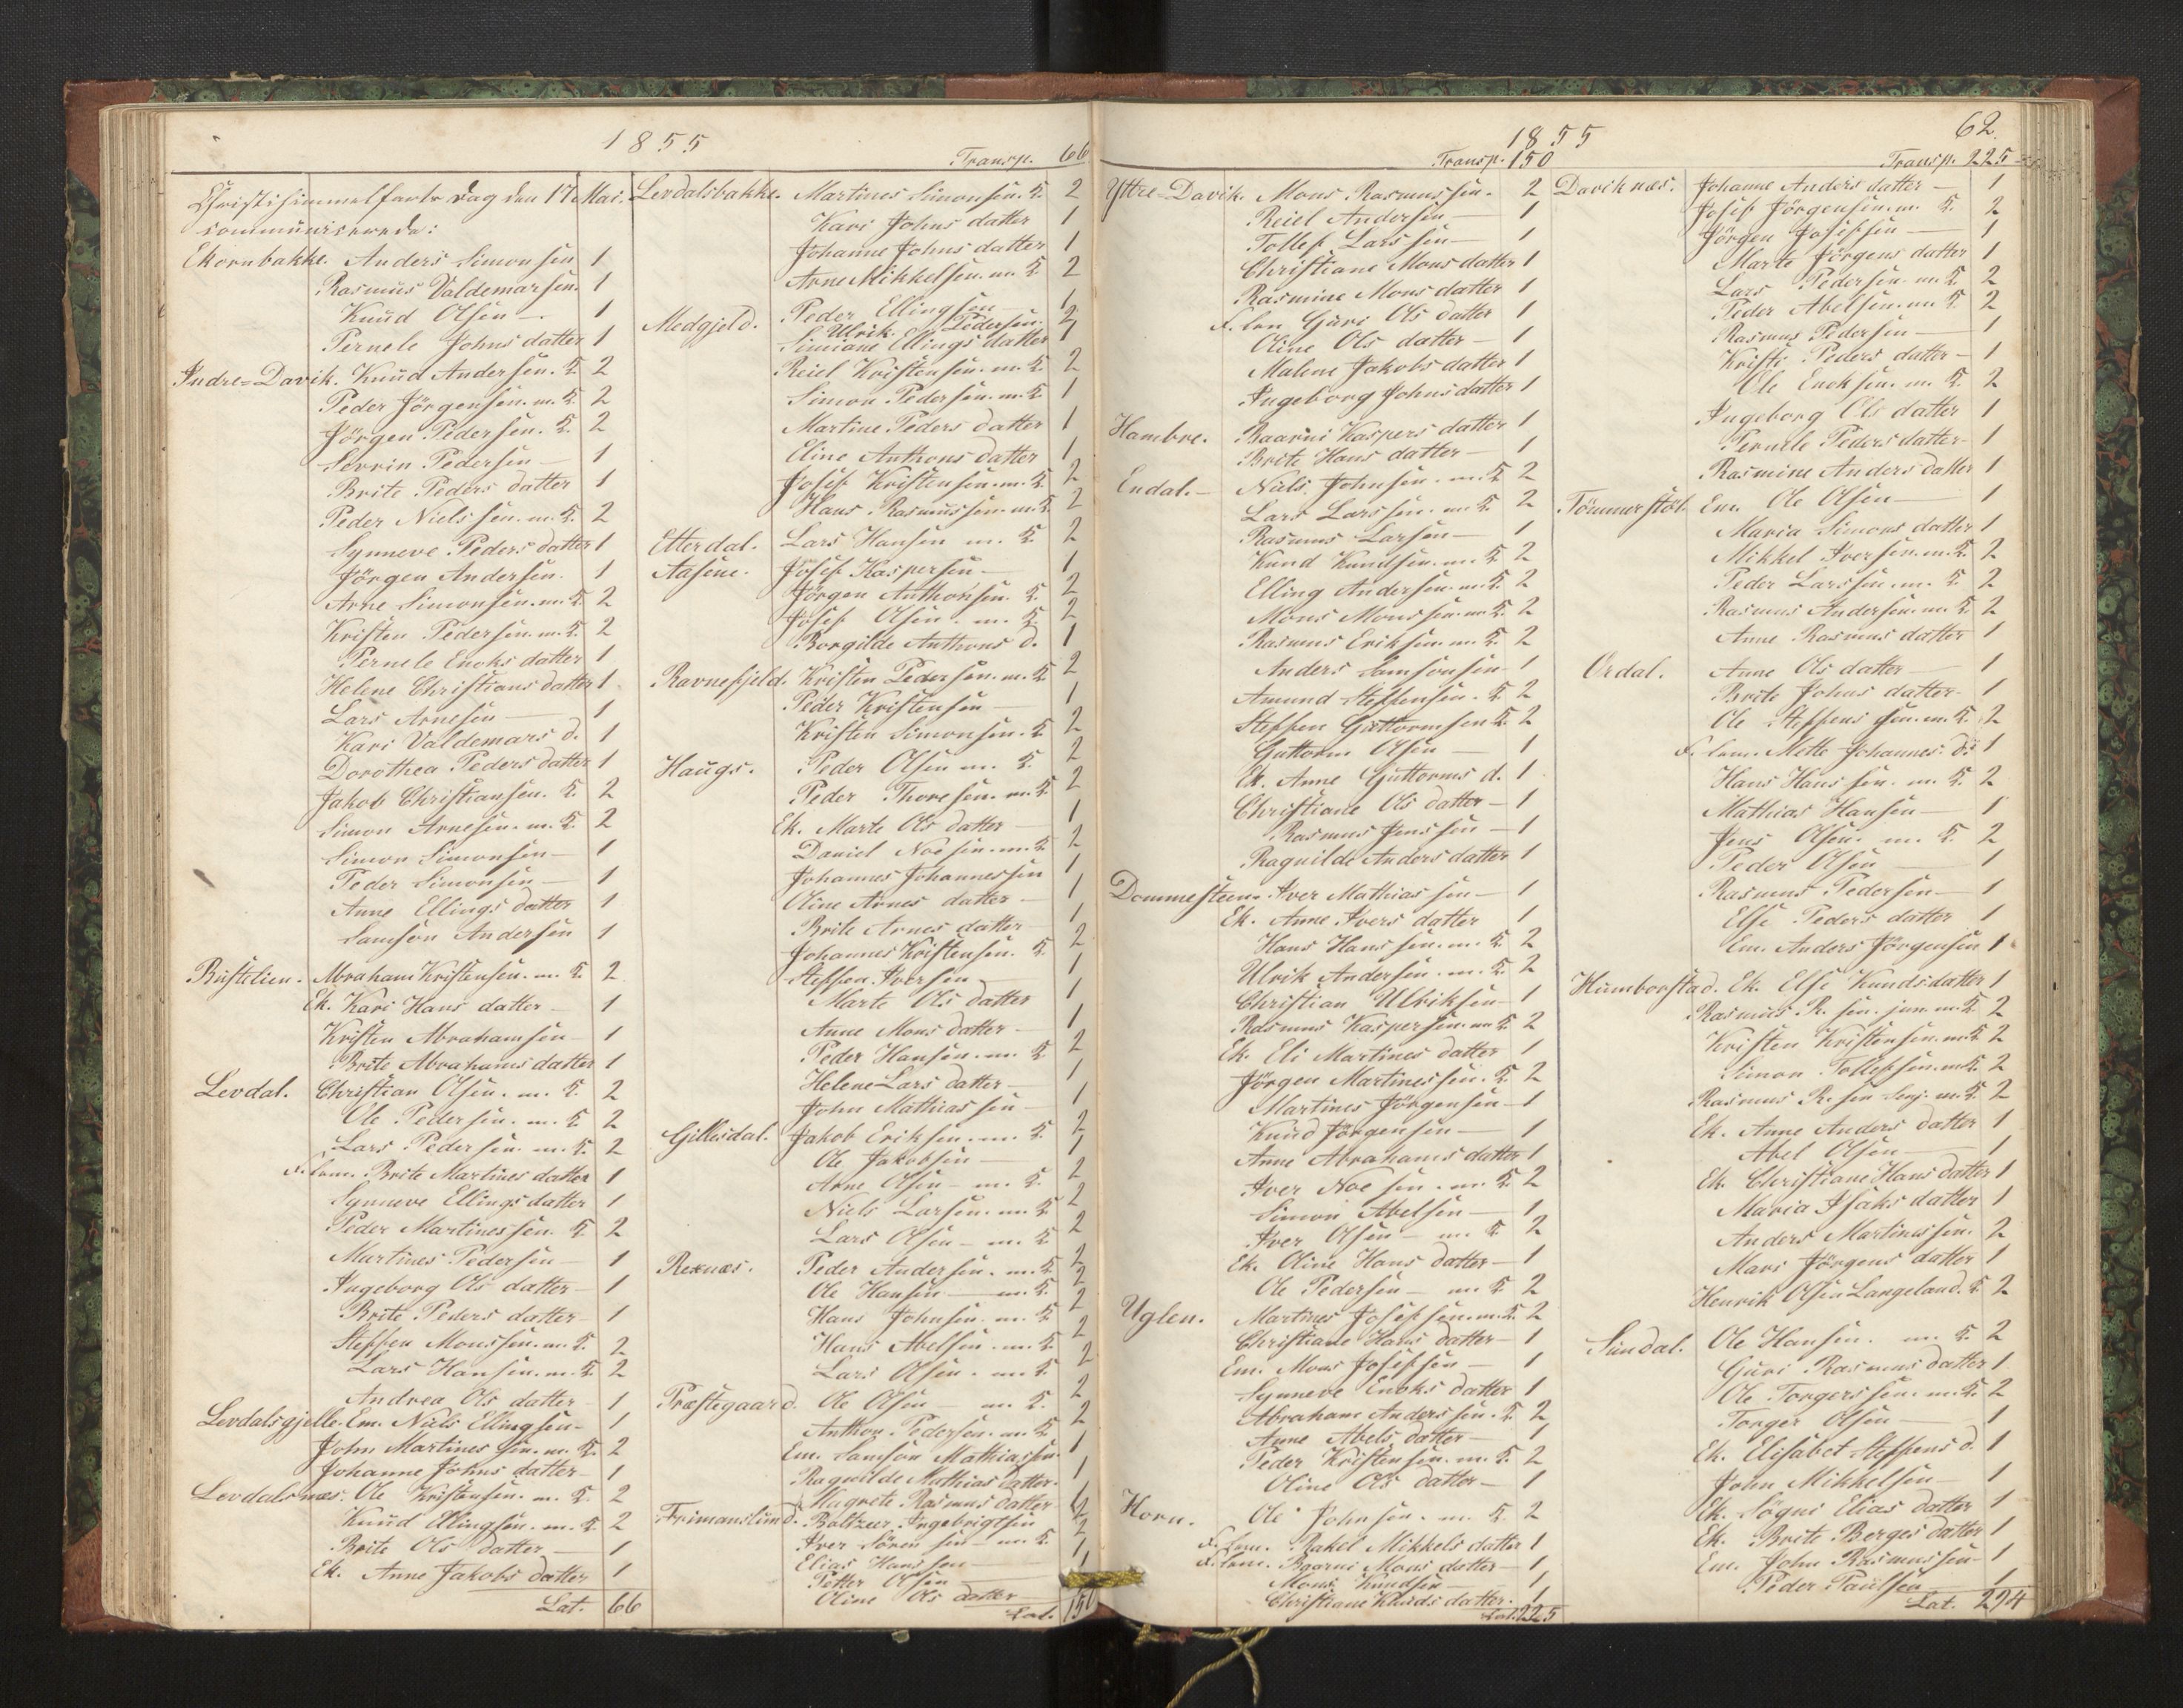 1855
Christi himmelfarts Dag den 17 Mai.
communiserede:
Ekornbakke. Anders Simonsen 1
Rasmus Valdemarsen. 1
Knud Olsen — 1
Pernele Johns datter 1
Indre-Davik. Knud Andersen. K. 2
Peder Jörgensen. m. K. 2
Jörgen Pedersen. K. 2
Severin Pedersen — 1
Brite Peders datter 1
Peder Nielssen. m. K. 2
Synneve Peders datter 1
Jörgen Andersen. 1
Arne Simonsen. m. K. 2
Kristen Pedersen. m. K. 2
Pernele Enoks datter 1
Helene Christians datter 1
Lars Arnesen — 1
Kari Valdemars d. 1
Dorothea Peders datter 1
Jakob Christiansen. K. 2
Simon Arnesen. m. K. 2
Simon Simonsen — 1
Peder Simonsen — 1
Anne Ellings datter 1
Samson Andersen 1
Rustelien. Abraham Kristensen. m. K. 2
Ek. Kari Hans datter — 1
Kristen Abrahamsen — 1
Brite Abrahams datter 1
Levdal. Christian Olsen. m. K. 2
Ole Pedersen. m. K. 2
Lars Pedersen. m. K. 2
F. lem. Brite Martines datter 1
Synneve Ellings datter 1
Peder Martinessen. K. 2
Martines Pedersen — 1
Ingeborg Ols datter — 1
Brite Peders datter — 1
Steffen Monssen. m. K. 2
Lars Hansen. m. K. 2
Andrea Ols datter 1
Levdalsgjelle. Em. Niels Ellingsen — 1
John Martinessen. m. K. 2
Johanne Johns datter — 1
Levdalsnæs. Ole Kristensen. m. K. 2
Knud Ellingsen. m. K. 2
Brite Ols datter — 1
Ek. Anne Jakobs datter 1
Lat. 66
Transp. 66
Levdalsbakke. Martines Simonsen. K. 2
Kari Johns datter 1
Johanne Johns datter 1
Arne Mikkelsen. m. K 2
Medgjeld. Peder Ellingsen 1
Ulrik Pedersen. 2
Simiane Ellings datter 1
Reiel Kristensen. m. K 2
Simon Pedersen. m. K 1
Martine Peders datter 1
Eline Anthons datter 1
Josef Kristensen. m. K 2
Hans Rasmussen. m. K 2
Etterdal. Lars Hansen m. K. 2
Aasene. Josef Kaspersen — 1
Jörgen Anthonsen. K. 2
Josef Olsen. m. K. 2
Borgilde Anthons d. 1
Ravnefjeld. Kristen Pedersen. m. K 2
Peder Kristensen — 1
Kristen Simonsen. K 2
Haugs. Peder Olsen m. K. 2
Peder Thoresen. m. K 2
Ek. Marte Ols datter — 1
Daniel Noesen. m. K 2
Johannes Johannessen 1
Oline Arnes datter — 1
Brite Arnes datter 1
Johannes Kristensen. K. 2
Steffen Iversen 1
Marte Ols datter 1
Anne Mons datter — 1
Peder Hansen. m. K 2
Helene Lars datter — 1
John Mathiassen — 1
Gillesdal. Jakob Eriksen. m. K. 2
Ole Jakobsen — 1
Arne Olsen — m. K. 2
Niels Larsen. m. K 2
Lars Olsen — m. K 2
Rexnæs. Peder Andersen. m. K 2
Ole Hansen — m. K. 2
Hans Johnsen. m. K 2
Hans Abelsen. m. K 2
Lars Olsen. m. K 2
Præstegaard. Ole Olsen — m. K. 2
Anthon Pedersen. m. K 2
Em. Samson Mathiassen 1
Ragnilde Mathias datter. 1
Magrete Rasmus datter 1
Frimanslund. Baltzer Ingebrigtsen 2
Iver Sörensen — m. K 2
Elias Hanssen 1
Petter Olsen 1
Oline Ols datter
Lat. 150
1855
62.
Transp. 150
Yttre-Davik. Mons Rasmussen. 2
Reiel Andersen 1
Tollef Larssen — 1
Christiane Mons datter 1
Rasmine Mons datter 1
F. lem Guri Ols datter 1
Oline Ols datter — 1
Malene Jakobs datter 1
Ingeborg Johns datter 1
Hambre. Baarni Kaspers datter 1
Brite Hans datter — 1
Endal. — Niels Johnsen. m. K 2
Lars Larssen. m. K. 2
Rasmus Larsen — 1
Knud Knudsen. m. K 2
Elling Andersen. m. K. 2
Mons Monssen. m. K. 2
Rasmus Eriksen. m. K. 2
Anders Samsonsen — 1
Amund Steffensen. K. 2
Steffen Guttormsen K. 2
Guttorm Olsen — 1
Ek. Anne Guttorms d. 1
Christiane Ols datter — 1
Rasmus Jenssen — 1
Ragnilde Anders datter 1
Dommesteen. Iver Mathiassen — 1
Ek. Anne Ivers datter 1
Hans Hanssen. m. K. 2
Ulrik Andersen. m. K. 2
Christian Ulriksen — 1
Rasmus Kaspersen. m. K 2
Ek. Eli Martines datter 1
Jörgen Martinessen. K. 2
Martines Jörgensen — 1
Knud Jörgensen — 1
Anne Abrahams datter 1
Iver Noesen. m. K. 2
Simon Abelsen — 1
Iver Olsen — m. K 2
Ek. Oline Hans datter — 1
Ole Pedersen — m. K 2
Uglen. Martines Josefsen. m. K. 2
Christiane Hans datter — 1
Em. Mons Josefsen — 1
Synneve Enoks datter 1
Abraham Anderssen. K. 2
Anne Abels datter — 1
Peder Kristensen. m. K. 2
Oline Ols datter — 1
Horn. Ole Johnsen. m. K. 2
F. lem. Rakel Mikkels datter 1
F. lem. Baarni Mons datter — 1
Mons Knudsen — 1
Christiane Knuds datter. 1
Lat. 225
Transp. 225
Daviknæs. Johanne Anders datter — 1
Josef Jörgensen. m. K. 2
Jörgen Josefsen — 1
Marte Jörgens datter 1
Lars Pedersen. m. K. 2
Peder Abelsen. m. K 2
Rasmus Pedersen — 1
Kristi Peders datter — 1
Ole Enoksen. m. K. 2
Ingeborg Ols datter 1
Pernele Peders datter — 1
Rasmine Anders datter 1
Tömmerstöl. Em. Ole Olsen — 1
Maria Simons datter 1
Mikkel Iversen. m. K. 2
Peder Larssen. m. K. 2
Rasmus Andersen. m. K 2
Anne Rasmus datter 1
Ordal. Anne Ols datter — 1
Brite Johns datter — 1
Ole Steffenssen. m. K. 2
F. lem. Mette Johannes d. 1
Hans Hanssen. m. K. 2
Mathias Hansen — 1
Jens Olsen. m. K. 2
Peder Olsen — 1
Rasmus Pedersen — 1
Else Peders datter 1
Em. Anders Jörgensen 1
Humborstad. Ek. Else Knuds datter 1
Rasmus R. sen. jun. m. K 2
Kristen Kristensen. m. K 2
Simon Tollefsen. m. K 2
Rasmus R. sen Senj. m. K. 2
Ek. Anne Anders datter 1
Abel Olsen — 1
Ek. Christiane Hans datter 1
Maria Isaks datter 1
Anders Martinessen. 2
Mari Jörgens datter 1
Henrik Olsen Langeland. K 2
Sundal. Ole Hansen. m. K. 2
Guri Rasmus datter 1
Ole Torgerssen. m. K. 2
Torger Olsen — 1
Ek. Elisabet Steffens d. 1
John Mikkelsen — 1
Ek. Sögni Elias datter 1
Ek. Brite Berges datter 1
Em. John Rasmussen — 1
Peder Paulsen 1
Lat. 294